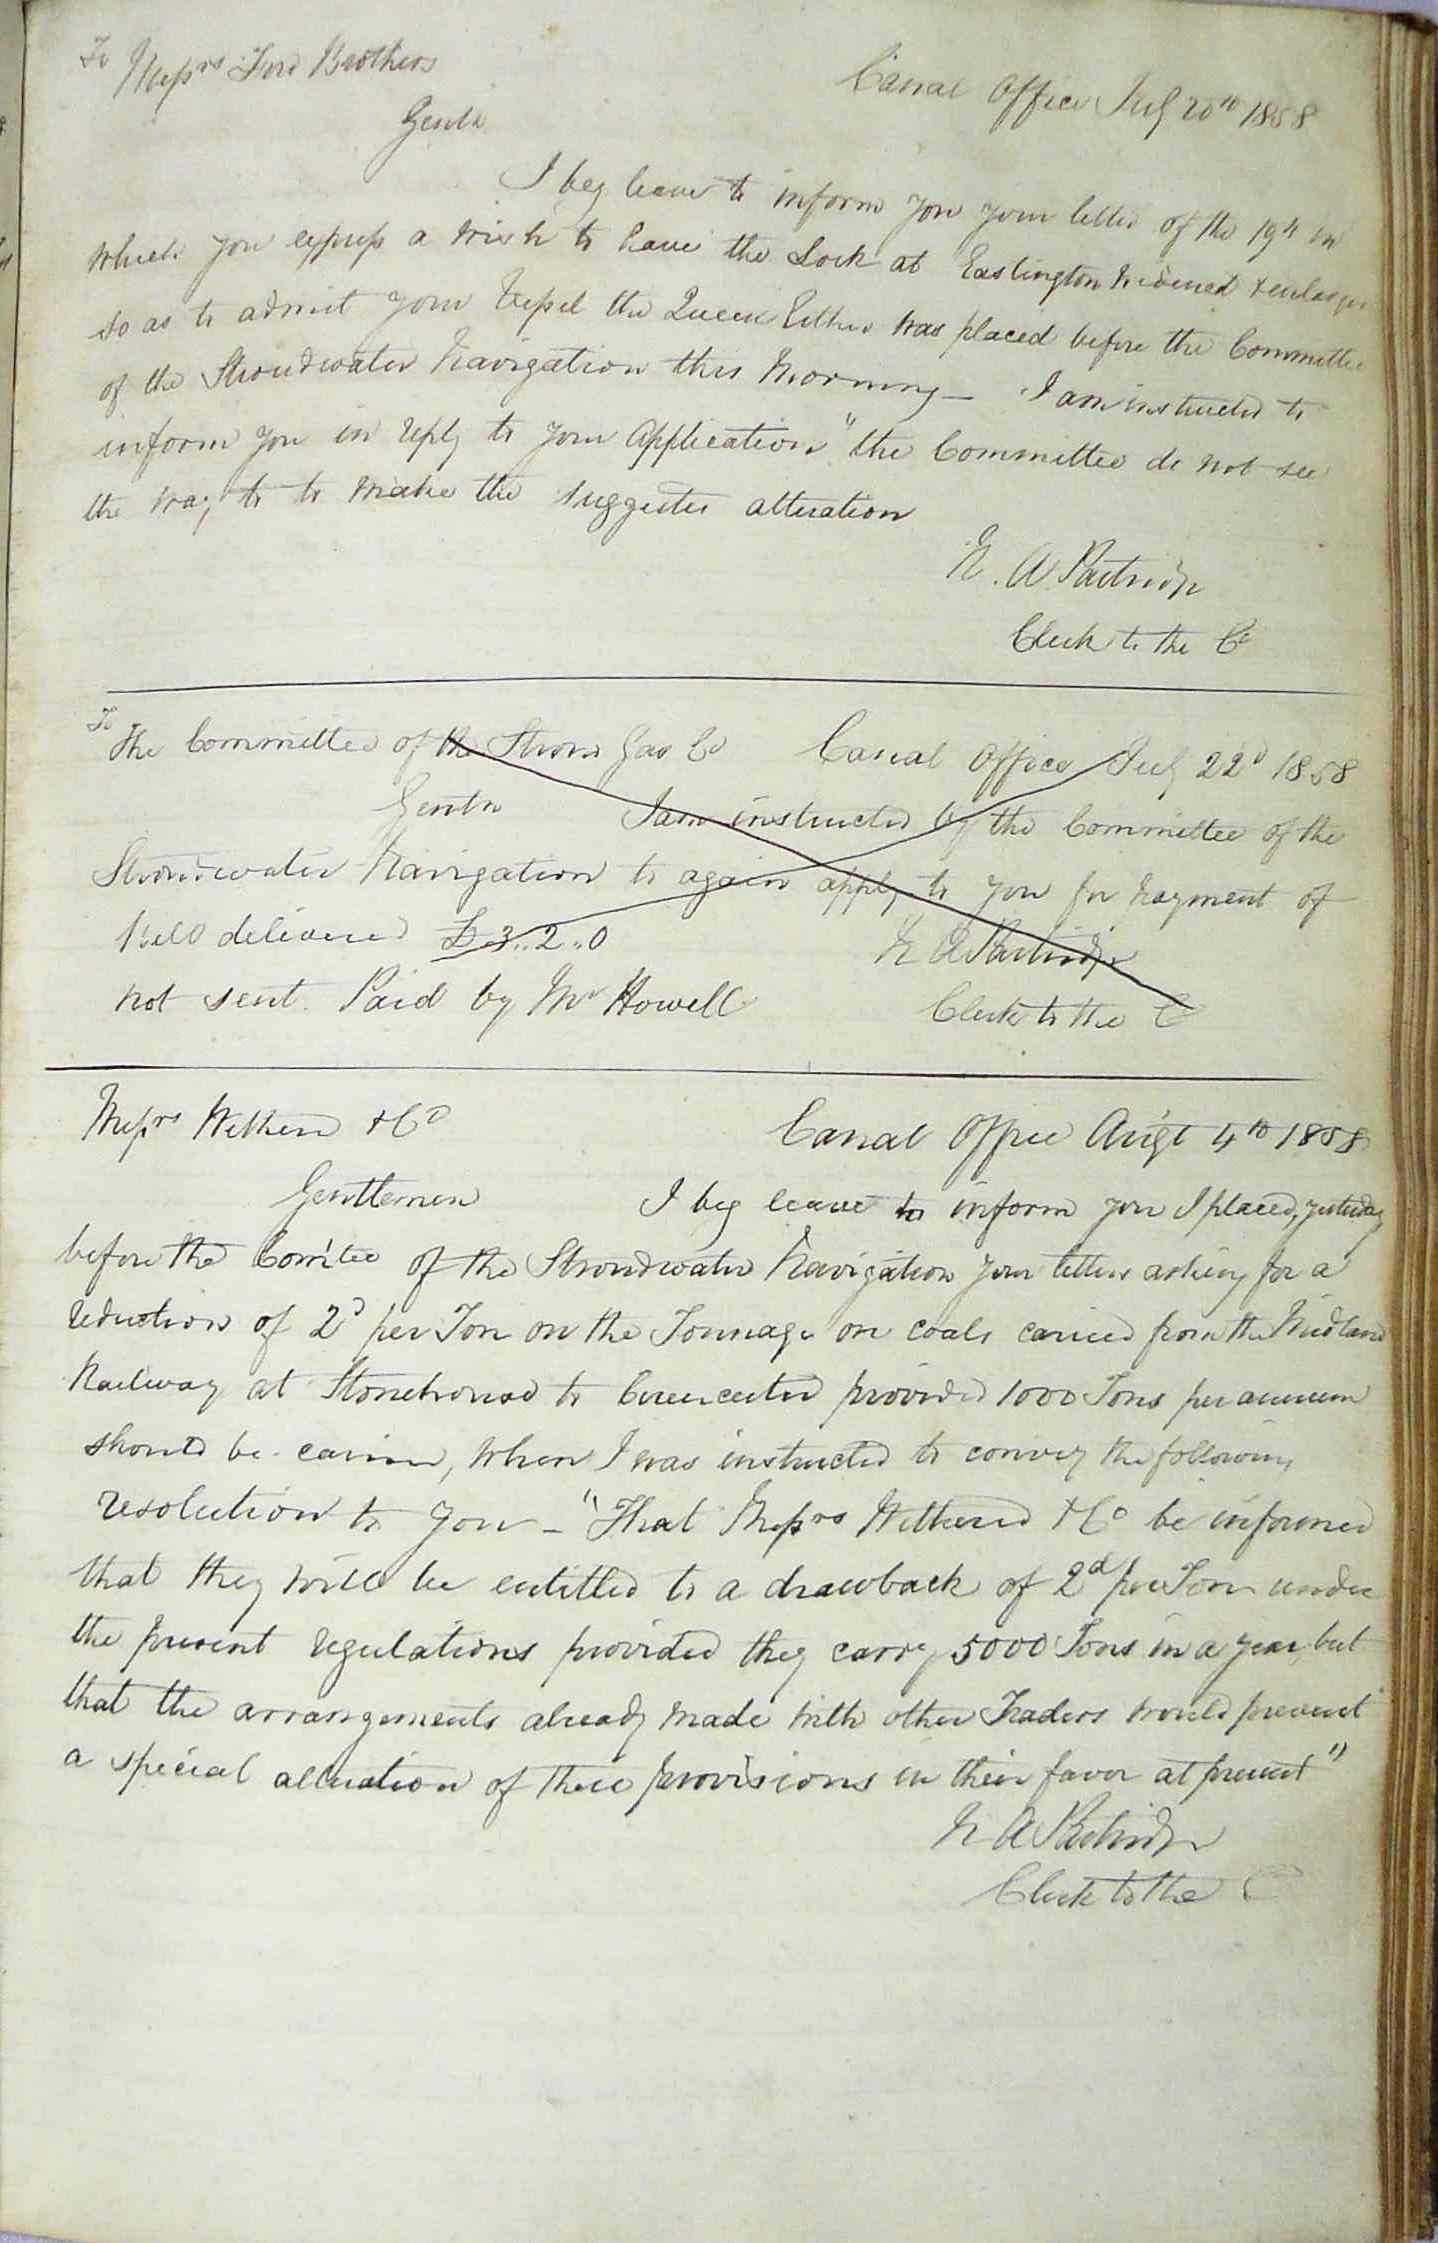 To Messrs Ford Brothers
Canal Office July 20th 1858
Gentn
I beg leave to inform you your letter of the 19th in
which you express a wish to have the Lock at Eastington widened & enlarged
so as to admit your Vessel the Queen Esther was placed before the Committee
of the Stroudwater Navigation this Morning — I am instructed to
inform you in reply to your Application "the Committee do not see
the way to to make the suggested alteration
W. A Partridge
Clerk to the Co
To
The Committee of the Stroud Gas Co Canal Office July 22d 1858
Gentn I am instructed by the Committee of the
Stroudwater Navigation to again apply to you for payment of
Bill delivered £3..2..0 W A Partridge
not sent. Paid by Mr Howell Clerk to the C
Messrs Wethered & Co Canal Office Augt 4th 1858
Gentlemen I beg leave to inform you I placed, yesterday
before the Com'tee of the Stroudwater Navigation your letter asking for a
reduction of 2d per Ton on the Tonnage on coals carried from the Midland
Railway at Stonehouse to Cirencester provided 1000 Tons per annum
should be carried, when I was instructed to convey the following
resolution to you — "That Messrs Wethered & Co be informed
that they will be entitled to a drawback of 2d per Ton under
the present regulations provided they carry 5000 Tons in a year, but
that the arrangements already made with other Traders would prevent
a special alteration of these provisions in their favor at present"
W A Partridge
Clerk to the C